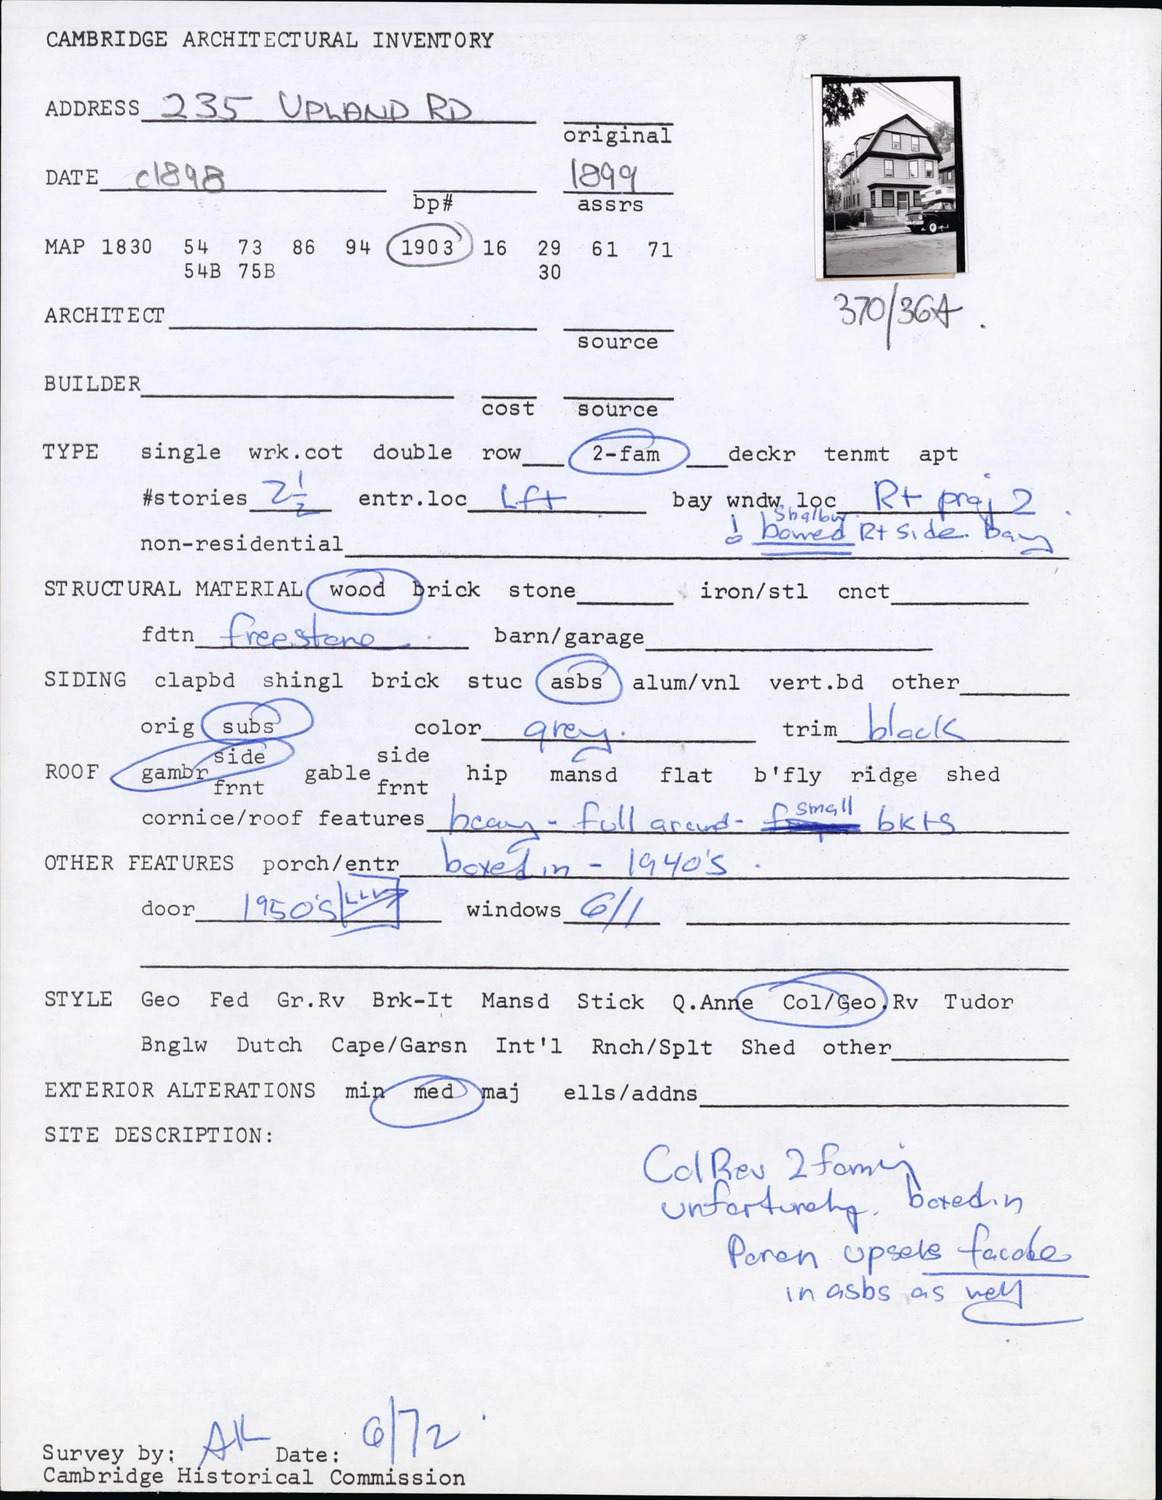 CAMBRIDGE ARCHITECTURAL INVENTORY
ADDRESS 235 UPLAND RD
original
DATE c1898 1899
bp# assrs
MAP 1830 54 73 86 94 1903 16 29 61 71
54B 75B 30
370/36A
ARCHITECT
source
BUILDER
cost source
TYPE single wrk.cot double row 2-fam deckr tenmt apt
#stories 2 1/2 entr.loc Lft bay wndw loc Rt proj 2
! shallow bowed Rt side bay
non-residential
STRUCTURAL MATERIAL wood brick stone iron/stl cnct
fdtn freestone barn/garage
SIDING clapbd shingl brick stuc asbs alum/vnl vert.bd other
orig subs color grey. trim black
ROOF gambr side frnt gable side frnt hip mansd flat b'fly ridge shed
cornice/roof features heavy - full around - small bkts
OTHER FEATURES porch/entr boxed in - 1940's
door 1950's windows 6/1
STYLE Geo Fed Gr.Rv Brk-It Mansd Stick Q.Anne Col/Geo.Rv Tudor
Bnglw Dutch Cape/Garsn Int'l Rnch/Splt Shed other
EXTERIOR ALTERATIONS min med maj ells/addns
SITE DESCRIPTION:
Col Rev 2 family
unfortunately. boxed in
Porch upsets facade
in asbs as well
Survey by: AK Date: 6/72
Cambridge Historical Commission